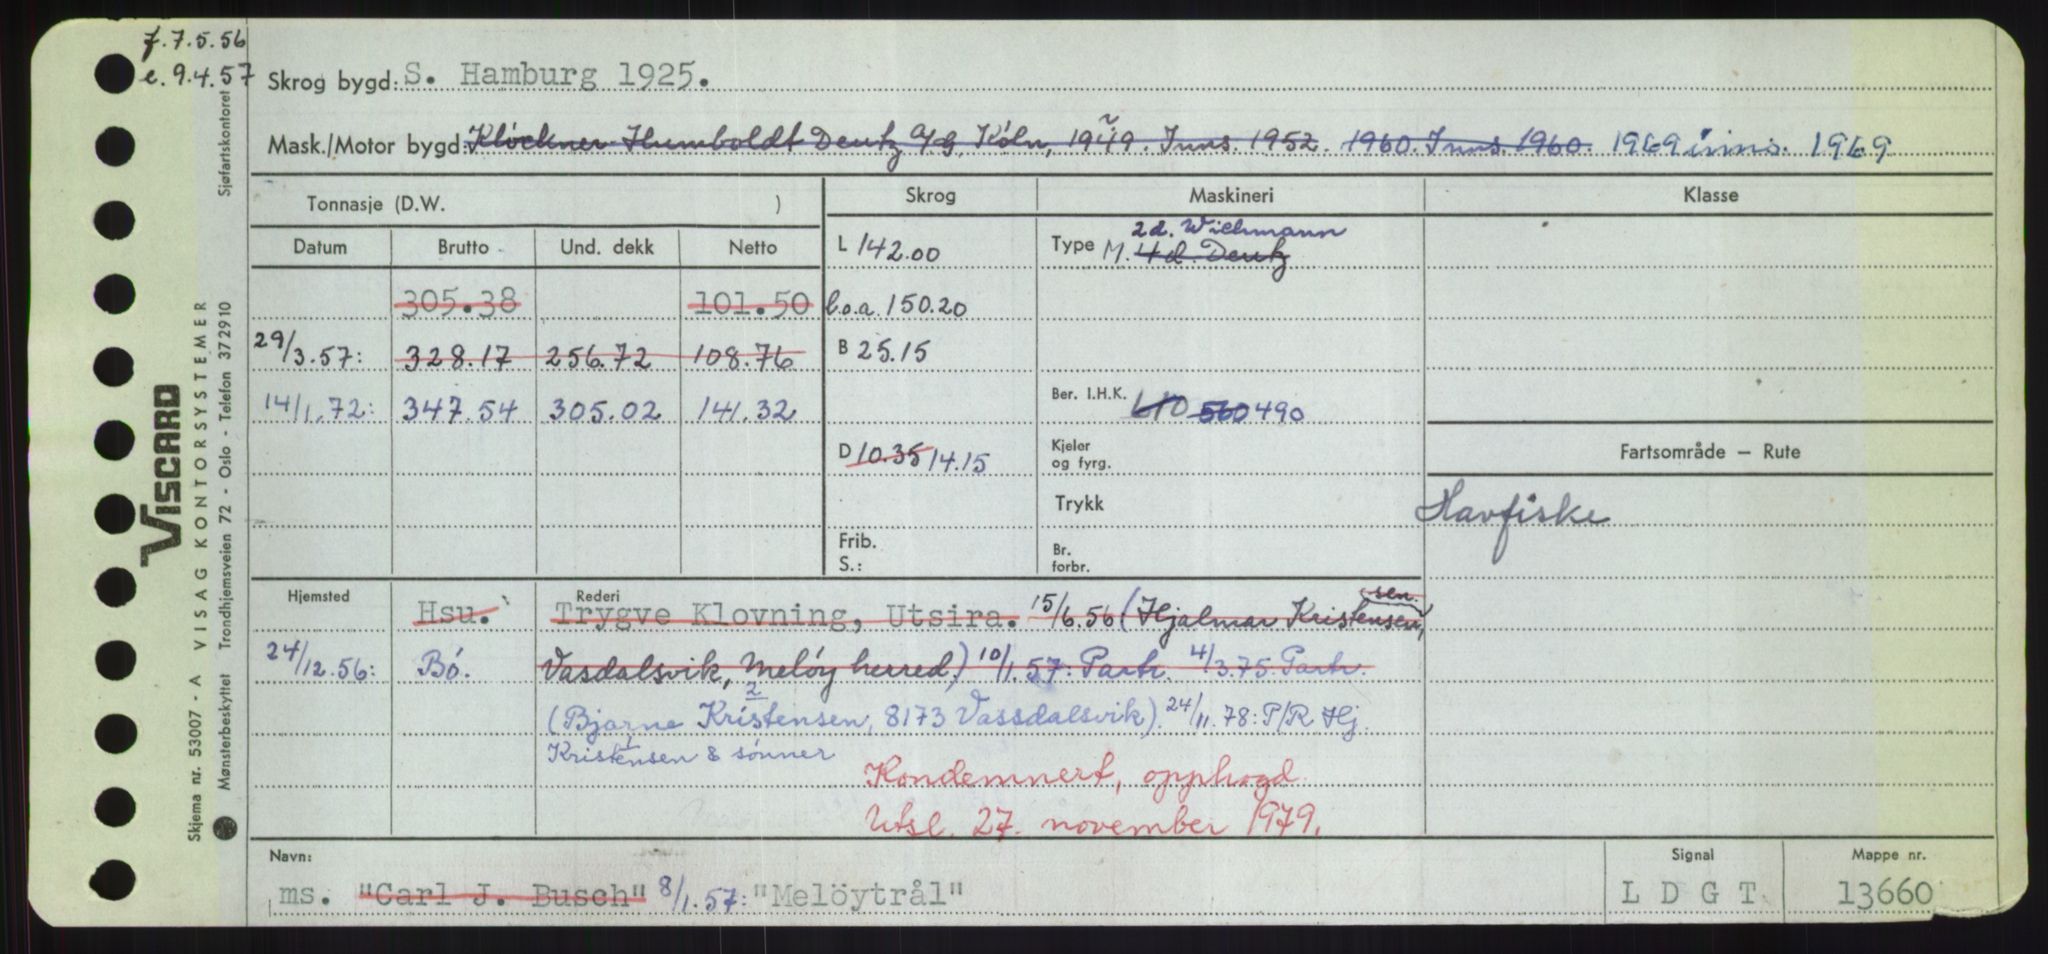 f. 7.5.56
e. 9.4.57
Skrog bygd: S. Hamburg 1925.
Mask./Motor bygd: Klöckner-Humboldt Deutz A/G, Köln, 1949. Inns. 1952. 1960. Inns. 1960. 1969 inns. 1969
Tonnasje (D.W. ) Skrog Maskineri Klasse
Datum Brutto Und. dekk Netto L 142.00 Type M. 4 d. Deutz 2 d. Wichmann
305.38 101.50 l.o.a. 150.20
29/3.57: 328.17 256.72 108.76 B 25.15
14/1.72: 347.54 305.02 141.32 Ber. I.H.K. 560 490
D 10.35 14.15 Kjeler og fyrg. Fartsområde — Rute
Trykk Havfiske
Frib. S.: Br. forbr.
Hjemsted Hsu. Rederi Trygve Klovning, Utsira. 15/6.56 (Hjalmar Kristensen, sen.
24/12.56: Bó. Vasdalsvik, Melóy herred) 10/1.57: Partr. 4/3.75. Partr.
(Bjarne Kristensen, 8173 Vassdalsvik). 24/11.78: P/R Hj. 2
Kristensen & sónner 1
Kondemnert, opphogd.
Utsl. 27. november 1979.
Navn: Signal Mappe nr.
ms. "Carl J. Busch" 8/1.57: "Melöytrål" L D G T 13660
VISCARD
Skjema nr. 53007 - A VISAG KONTORSYSTEMER
Mønsterbeskyttet Trondhjemsveien 72 - Oslo - Telefon 37 29 10 Sjøfartskontoret